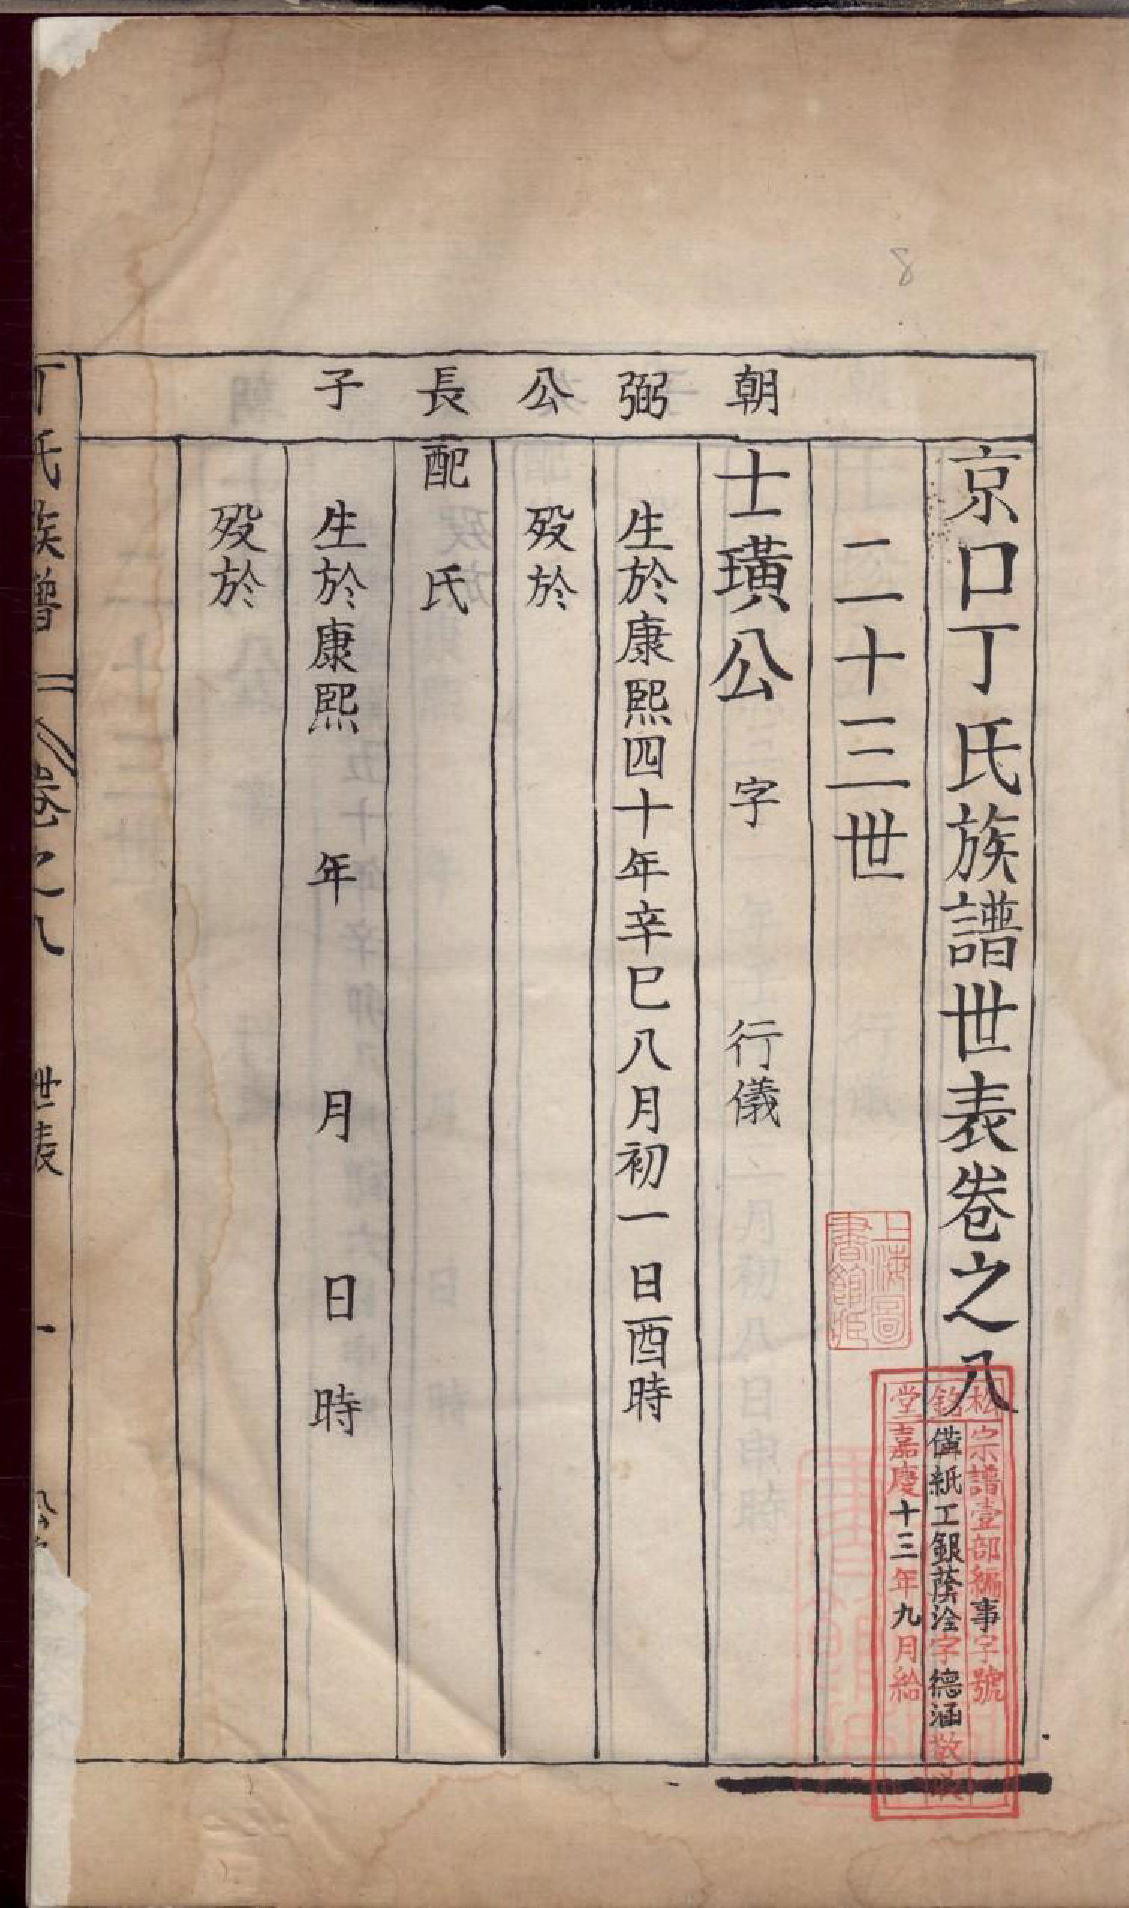 8
朝弼公長子
京口丁氏族譜世表卷之八
二十三世
士璜公 字 行儀
生於康熙四十年辛巳八月初一日酉時
歿於
配 氏
生於康熙 年 月 日 時
歿於
氏族譜 卷之八 世表 一
上海圖
書館
松
銘
堂
宗譜壹部編事字號
備紙工銀蔭洤字德涵敬收
嘉慶十三年九月給